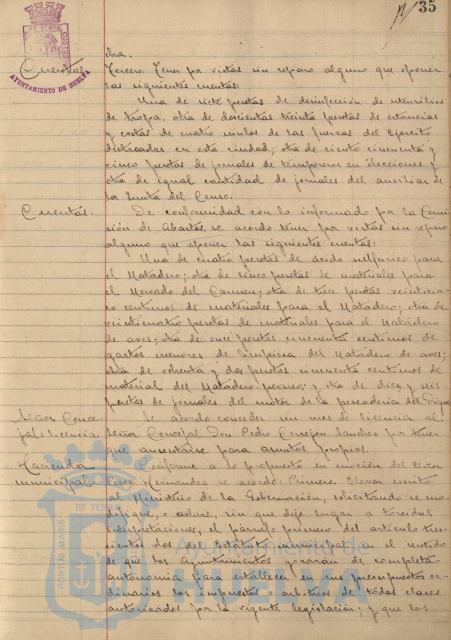 35
AYUNTAMIENTO DE HUELVA
cha.
Cuentas
Tercero. Tener por vistas sin reparo alguno que oponer
las siguientes cuentas:
Una de siete pesetas de desinfección de utensilios
de tropa, otra de doscientas treinta pesetas de estancias
y costas de cuatro mulos de las fuerzas del Ejército
destacadas en esta ciudad; otra de ciento cincuenta y
cinco pesetas de jornales de temporeros en elecciones y
otra de igual cantidad de jornales del auxiliar de
la Junta del Censo.
Cuentas.
De conformidad con lo informado por la Comi
sión de Abastos, se acordó tener por vistas sin reparo
alguno que oponer las siguientes cuentas:
Una de cuatro pesetas de ácido sulfúrico para
el Matadero; otra de cinco pesetas de materiales para
el Mercado del Carmen; otra de trece pesetas veinticin-
co centimos de materiales para el Matadero; otra de
veinticuatro pesetas de materiales para el Matadero
de aves; otra de once pesetas cincuenta centimos de
gastos menores de limpieza del Matadero de aves;
otra de ochenta y dos pesetas cincuenta centimos de
material del Matadero y otra de diez y seis
pesetas de jornales del motor de la pescadería del Dique
Señor Conce
jal: licencia.
Se acordó conceder un mes de licencia al
Señor Concejal Don Pedro Cerrejón Sanchez por tener
que ausentarse para asuntos propios.
Hacienda
municipal.
Conforme a lo propuesto en moción del Señor
Hernandez se acordó: Primero. Elevar escrito
al Ministerio de la Gobernación, solicitando se mo-
difique, o aclare, sin que deje lugar a torcidas
interpretaciones, el párrafo primero del artículo tres-
cientos dos del Estatuto municipal en el sentido
de que los Ayuntamientos gozarán de completa
autonomía para establecer en sus presupuestos or-
dinarios los impuestos o arbitrios de todas clases
autorizados por la vigente legislación; y que los
Ayuntamiento de
HUELVA